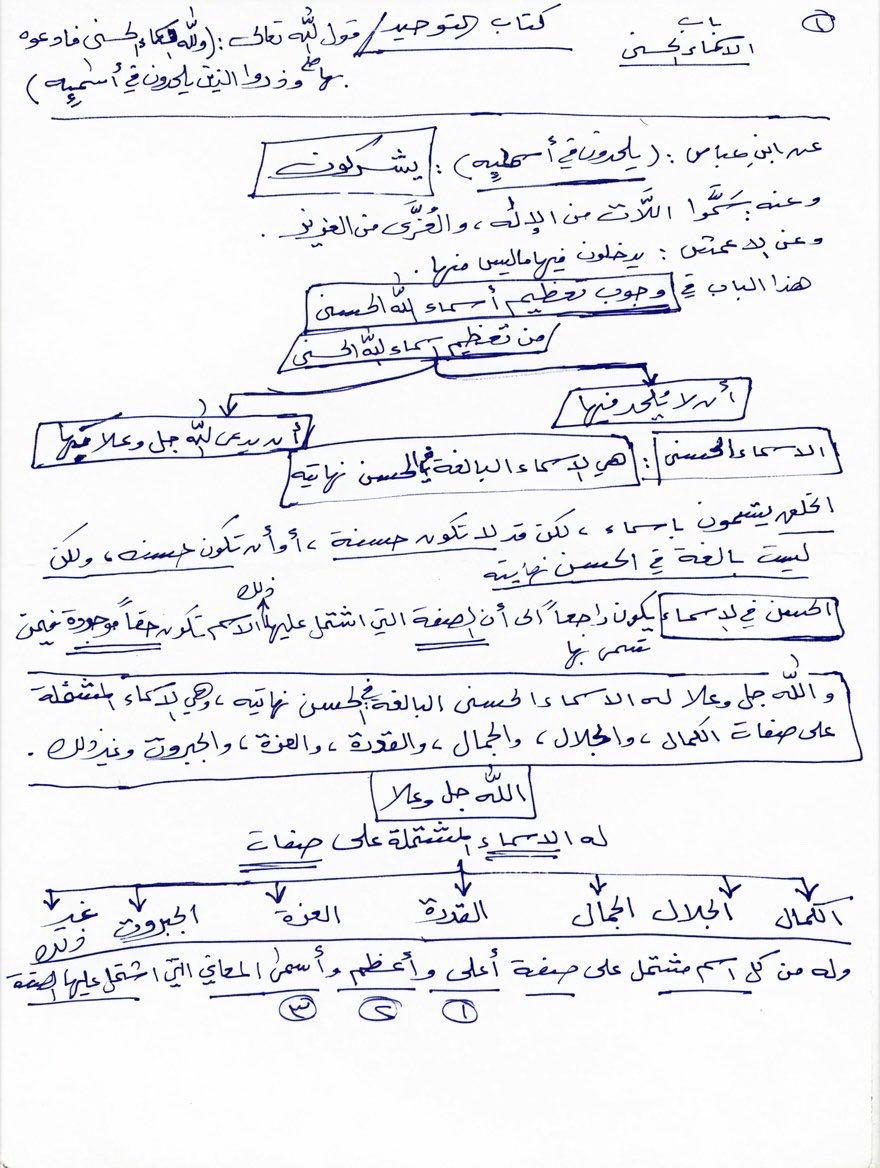 ١
باب
الاسماء الحسنى
كتاب التوحيد / قول الله تعالى : (ولله الاسماء الحسنى فادعوه
بها صلے وذروا الذين يلحدون في أسمٰئِهِ)
عن ابن عباس : (يلحدون في أسمٰئِهِ) : يشركون
وعنه : سَمَّوا اللَّات من الإلٰه ، والعُزَّى من العزيز .
وعن الاعمش : يدخلون فيها ما ليس منها .
هذا الباب في وجوب تعظيم أسماء الله الحسنى
من تعظيم اسماء الله الحسنى
أن لا يُلحد فيها
أن يدعى الله جل وعلا بها
الاسماء الحسنى : هي الاسماء البالغة في الحسن نهايته
الخلق يتسمون باسماء ، لكن قد لا تكون حسنة ، أو أن تكون حسنه ، ولكن
ليست بالغة في الحسن نهايته
الحسن في الاسماء يكون راجعاً الى أن الصفة التي اشتمل عليها ذلك الاسم تكون حقاً موجودة فيمن
تسمى بها
والله جل وعلا له الاسماء الحسنى البالغة في الحسن نهايته ، وهي الاسماء المشتملة
على صفات الكمال ، والجلال ، والجمال ، والقدرة ، والعزة ، والجبروت وغير ذلك .
الله جل وعلا
له الاسماء المشتملة على صفات
الكمال الجلال الجمال القدرة العزة الجبروت غير ذلك
وله من كل اسم مشتمل على صفة أعلى وأعظم وأسمى المعاني التي اشتمل عليها الصفة
١ ٢ ٣